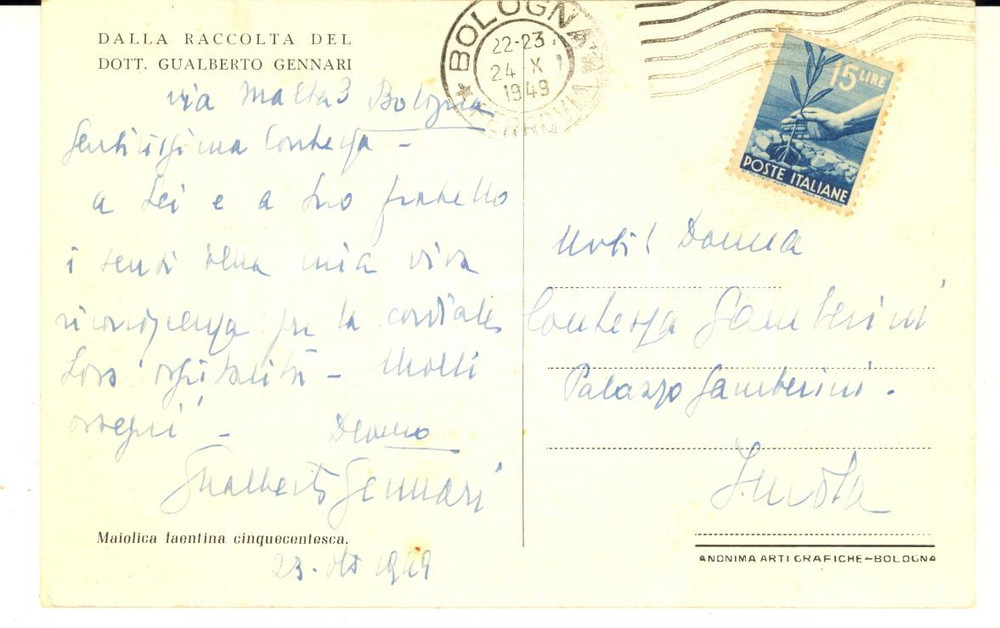 DALLA RACCOLTA DEL
DOTT. GUALBERTO GENNARI
via Malta 3 Bologna
Gentilissima Contessa -
a Lei e a Suo fratello
i sensi della mia viva
riconoscenza per la cordiale
Loro ospitalità - Molti
ossequi -
Devmo
Gualberto Gennari
Maiolica faentina cinquecentesca.
23. Ott 1949
BOLOGNA
FERROVIA
22-23
24 X
1949
15 LIRE
POSTE ITALIANE
Nobil Donna
Contessa Gamberini
Palazzo Gamberini.
Imola
ANONIMA ARTI GRAFICHE-BOLOGNA